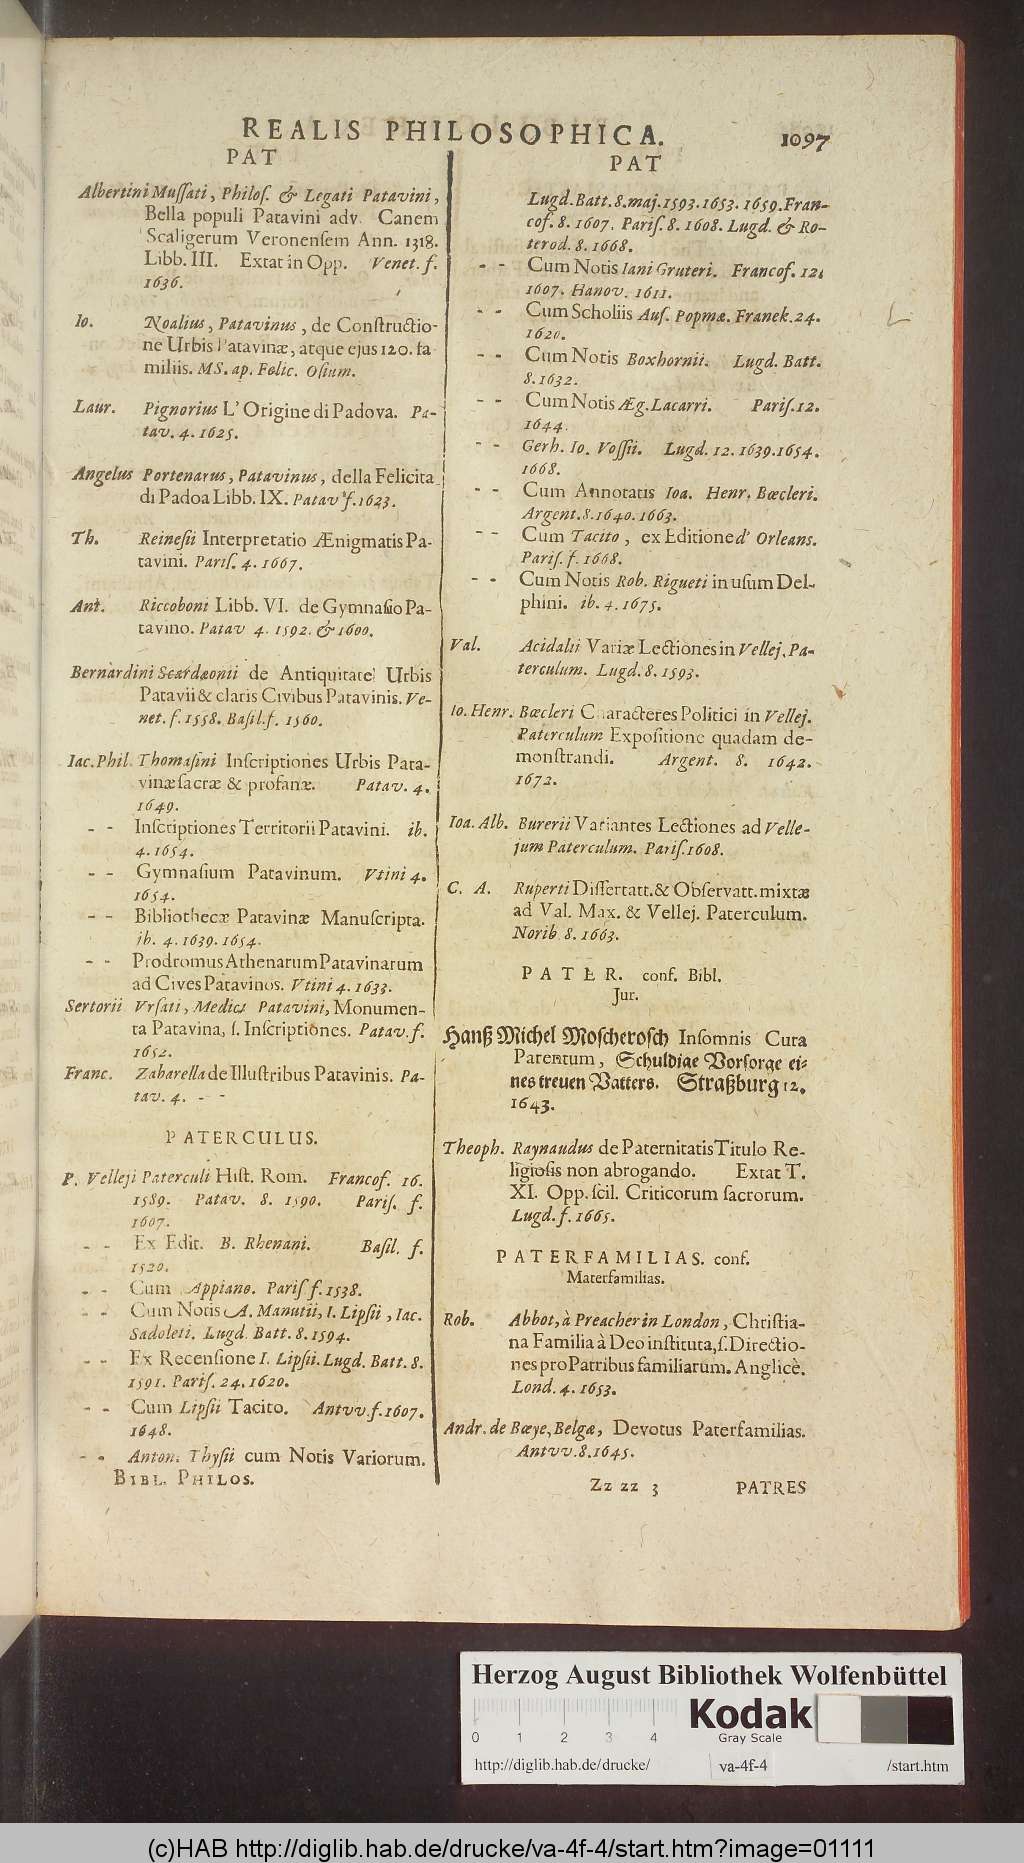 REALIS PHILOSOPHICA. 1097
PAT
Albertini Mussati, Philos. & Legati Patavini,
Bella populi Patavini adv. Canem
Scaligerum Veronensem Ann. 1318.
Libb. III. Extat in Opp. Venet. f.
1636.
Io. Noalius, Patavinus, de Constructio-
ne Urbis Patavinæ, atque ejus 120. fa
miliis. MS. ap. Felic. Osium.
Laur. Pignorius L' Origine di Padova. Pa-
tav. 4. 1625.
Angelus Portenarus, Patavinus, della Felicita
di Padoa Libb. IX. Patav f. 1623.
Th. Reinesii Interpretatio Ænigmatis Pa-
tavini. Paris. 4. 1667.
Ant. Riccoboni Libb. VI. de Gymnasio Pa-
tavino. Patav 4. 1592. & 1600.
Bernardini Scardæonii de Antiquitate Urbis
Patavii & claris Civibus Patavinis. Ve-
net. f. 1558. Basil. f. 1560.
Iac. Phil. Thomasini Inscriptiones Urbis Pata-
vinæ sacræ & profanæ. Patav. 4.
1649.
- - Inscriptiones Territorii Patavini. ib.
4. 1654.
- - Gymnasium Patavinum. Vtini 4.
1654.
- - Bibliothecæ Patavinæ Manuscripta.
ib. 4. 1639. 1654.
- - Prodromus Athenarum Patavinarum
ad Cives Patavinos. Vtini 4. 1633.
Sertorii Vrsati, Medici Patavini, Monumen-
ta Patavina, s. Inscriptiones. Patav. f.
1652.
Franc. Zabarella de Illustribus Patavinis. Pa-
tav. 4. - -
PATERCULUS.
P. Velleji Paterculi Hist. Rom. Francof. 16.
1589. Patav. 8. 1590. Paris. f.
1607.
- - Ex Edit. B. Rhenani. Basil. f.
1520.
- - Cum Appiano. Paris f. 1538.
- - Cum Notis A. Manutii, I. Lipsii, Iac.
Sadoleti. Lugd. Batt. 8. 1594.
- - Ex Recensione I. Lipsii. Lugd. Batt. 8.
1591. Paris. 24. 1620.
- - Cum Lipsii Tacito. Antvv. f. 1607.
1648.
- - Anton. Thysii cum Notis Variorum.
BIBL. PHILOS.
PAT
Lugd. Batt. 8. maj. 1593. 1653. 1659. Fran-
cof. 8. 1607. Paris. 8. 1608. Lugd. & Ro-
terod. 8. 1668.
- - Cum Notis Iani Gruteri. Francof. 12.
1607. Hanov. 1611.
- - Cum Scholiis Aus. Popmæ. Franek. 24.
1620.
- - Cum Notis Boxhornii. Lugd. Batt.
8. 1632.
- - Cum Notis Æg. Lacarri. Paris. 12.
1644.
- - Gerh. Io. Vossii. Lugd. 12. 1639. 1654.
1668.
- - Cum Annotatis Ioa. Henr. Bœcleri.
Argent. 8. 1640. 1663.
- - Cum Tacito, ex Editione d' Orleans.
Paris. f. 1668.
- - Cum Notis Rob. Rigueti in usum Del-
phini. ib. 4. 1675.
Val. Acidalii Variæ Lectiones in Vellej. Pa-
terculum. Lugd. 8. 1593.
Io. Henr. Bœcleri Characteres Politici in Vellej.
Paterculum Expositione quadam de-
monstrandi. Argent. 8. 1642.
1672.
Ioa. Alb. Burerii Variantes Lectiones ad Velle-
jum Paterculum. Paris. 1608.
C. A. Ruperti Dissertatt. & Observatt. mixtæ
ad Val. Max. & Vellej. Paterculum.
Norib 8. 1663.
PATER. conf. Bibl.
Jur.
Hanß Michel Moscherosch Insomnis Cura
Parentum, Schuldige Vorsorge ei-
nes treuen Vatters. Straßburg 12.
1643.
Theoph. Raynaudus de Paternitatis Titulo Re-
ligiosis non abrogando. Extat T.
XI. Opp. scil. Criticorum sacrorum.
Lugd. f. 1665.
PATERFAMILIAS. conf.
Materfamilias.
Rob. Abbot, à Preacher in London, Christia-
na Familia à Deo instituta, s. Directio-
nes pro Patribus familiarum. Anglicè.
Lond. 4. 1653.
Andr. de Bœye, Belgæ, Devotus Paterfamilias.
Antvv. 8. 1645.
Zz zz 3 PATRES
Herzog August Bibliothek Wolfenbüttel
0 1 2 3 4
Kodak
Gray Scale
http://diglib.hab.de/drucke/ va-4f-4 /start.htm
(c)HAB http://diglib.hab.de/drucke/va-4f-4/start.htm?image=01111